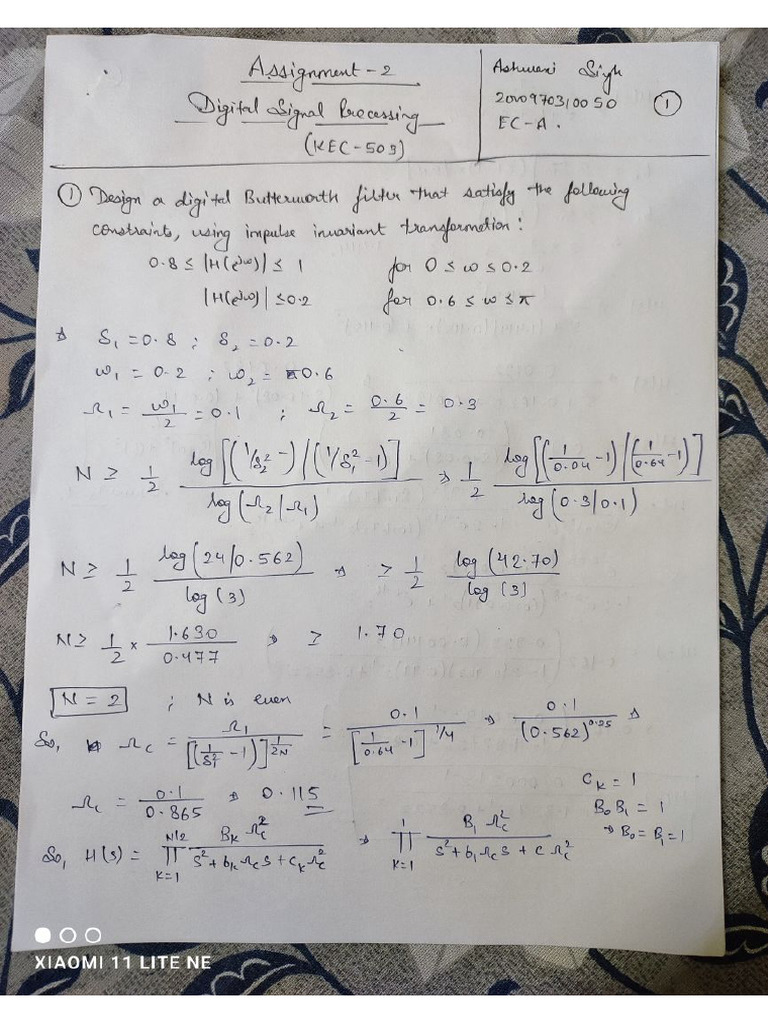 Assignment-2
Digital Signal Processing
(KEC-503)
Ashwani Singh
2000970310050
EC-A.
①
① Design a digital Butterworth filter that satisfy the following
constraints, using impulse invariant transformation:
0.8 ≤ |H(e^jω)| ≤ 1 for 0 ≤ ω ≤ 0.2
|H(e^jω)| ≤ 0.2 for 0.6 ≤ ω ≤ π
⇒ δ₁ = 0.8 ; δ₂ = 0.2
ω₁ = 0.2 ; ω₂ = 0.6
Ω₁ = ω₁/2 = 0.1 ; Ω₂ = 0.6/2 = 0.3
N ≥ 1/2 log[(1/δ₂² -)/(1/δ₁² -1)] / log(Ω₂/Ω₁) ⇒ 1/2 log[(1/0.04 -1)/(1/0.64 -1)] / log(0.3/0.1)
N ≥ 1/2 log(24/0.562) / log(3) ⇒ ≥ 1/2 log(42.70) / log(3)
N ≥ 1/2 × 1.630/0.477 ⇒ ≥ 1.70
N = 2 ; N is even
So, Ωc = Ω₁ / [(1/δ₁² -1)]^(1/2N) = 0.1 / [1/0.64 -1]^(1/4) ⇒ 0.1 / (0.562)^0.25 ⇒
Ωc = 0.1/0.865 ⇒ 0.115
Ck = 1
B₀B₁ = 1
⇒ B₀ = B₁ = 1
So, H(s) = ∏_{k=1}^{N/2} BkΩc² / (s² + bkΩcs + ckΩc²) ⇒ ∏_{k=1}^{1} B₁Ωc² / (s² + b₁Ωcs + cΩc²)
XIAOMI 11 LITE NE